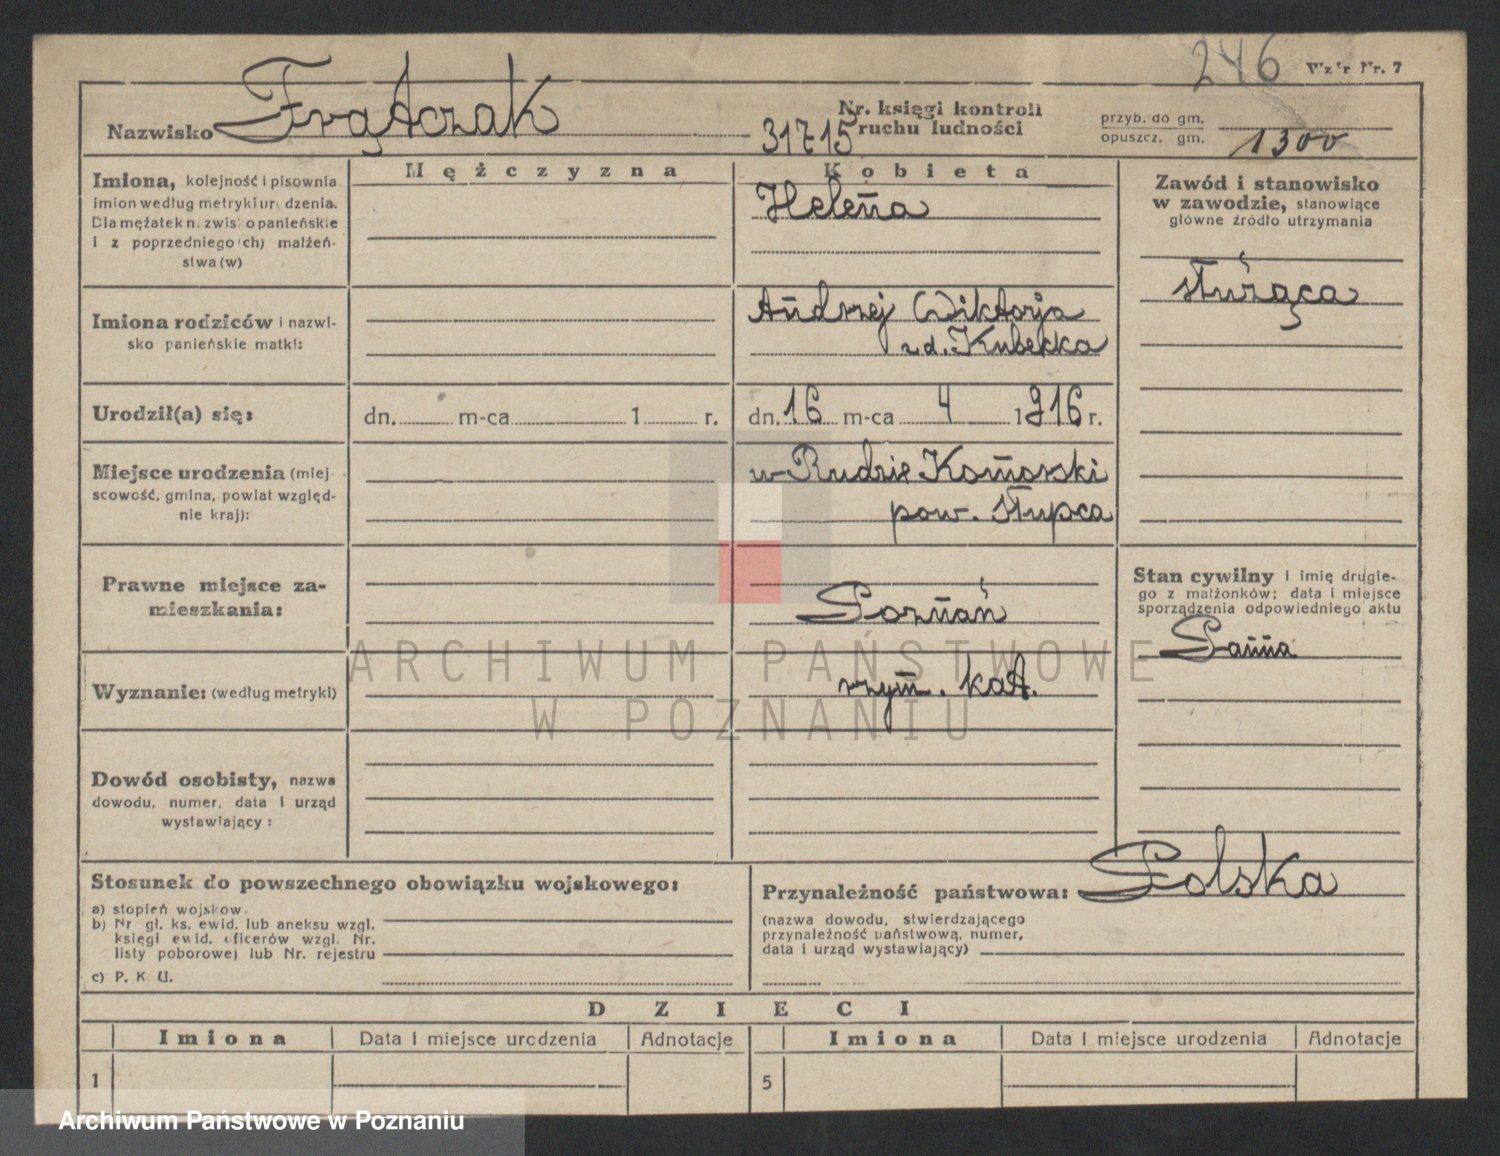 246 Wzór Nr. 7
Nazwisko Frątczak
Nr. księgi kontroli
ruchu ludności
31715
przyb. do gm.
opuszcz. gm.
1300
Imiona, kolejność i pisownia
imion według metryki urodzenia.
Dla mężatek nazwisko panieńskie
i z poprzedniego(ch) małżeń-
stwa(w)
Mężczyzna
Kobieta
Helena
Zawód i stanowisko
w zawodzie, stanowiące
główne źródło utrzymania
służąca
Imiona rodziców i nazwi-
sko panieńskie matki:
Andrzej Wiktorja
z d. Kubekka
Urodził(a) się:
dn. m-ca 1 r.
dn. 16 m-ca 4 1916 r.
Miejsce urodzenia (miej-
scowość, gmina, powiat względ-
nie kraj):
w Rudzie Komorski
pow. Słupca
Prawne miejsce za-
mieszkania:
Poznań
Stan cywilny i imię drugie-
go z małżonków; data i miejsce
sporządzenia odpowiedniego aktu
Panna
Wyznanie: (według metryki)
rzym. kat.
ARCHIWUM PAŃSTWOWE
W POZNANIU
Dowód osobisty, nazwa
dowodu, numer, data i urząd
wystawiający:
Stosunek do powszechnego obowiązku wojskowego:
a) stopień wojskow.
b) Nr gł. ks. ewid. lub aneksu wzgl.
księgi ewid. oficerów wzgl. Nr.
listy poborowej lub Nr. rejestru
c) P. K. U.
Przynależność państwowa: Polska
(nazwa dowodu, stwierdzającego
przynależność państwową, numer,
data i urząd wystawiający)
DZIECI
Imiona Data i miejsce urodzenia Adnotacje Imiona Data i miejsce urodzenia Adnotacje
1 5
Archiwum Państwowe w Poznaniu